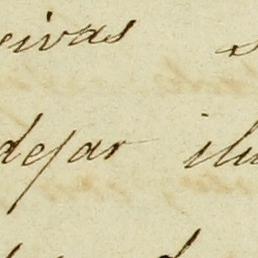 eivas
dejar ilu